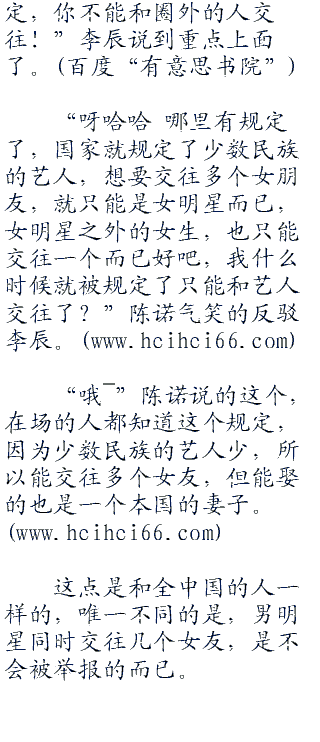 定，你不能和圈外的人交
往！”李辰说到重点上面
了。(百度“有意思书院”)
“呀哈哈 哪里有规定
了，国家就规定了少数民族
的艺人，想要交往多个女朋
友，就只能是女明星而已，
女明星之外的女生，也只能
交往一个而已好吧，我什么
时候就被规定了只能和艺人
交往了？”陈诺气笑的反驳
李辰。(www.hcihci66.com)
“哦¯”陈诺说的这个，
在场的人都知道这个规定，
因为少数民族的艺人少，所
以能交往多个女友，但能娶
的也是一个本国的妻子。
(www.hcihci66.com)
这点是和全中国的人一
样的，唯一不同的是，男明
星同时交往几个女友，是不
会被举报的而已。